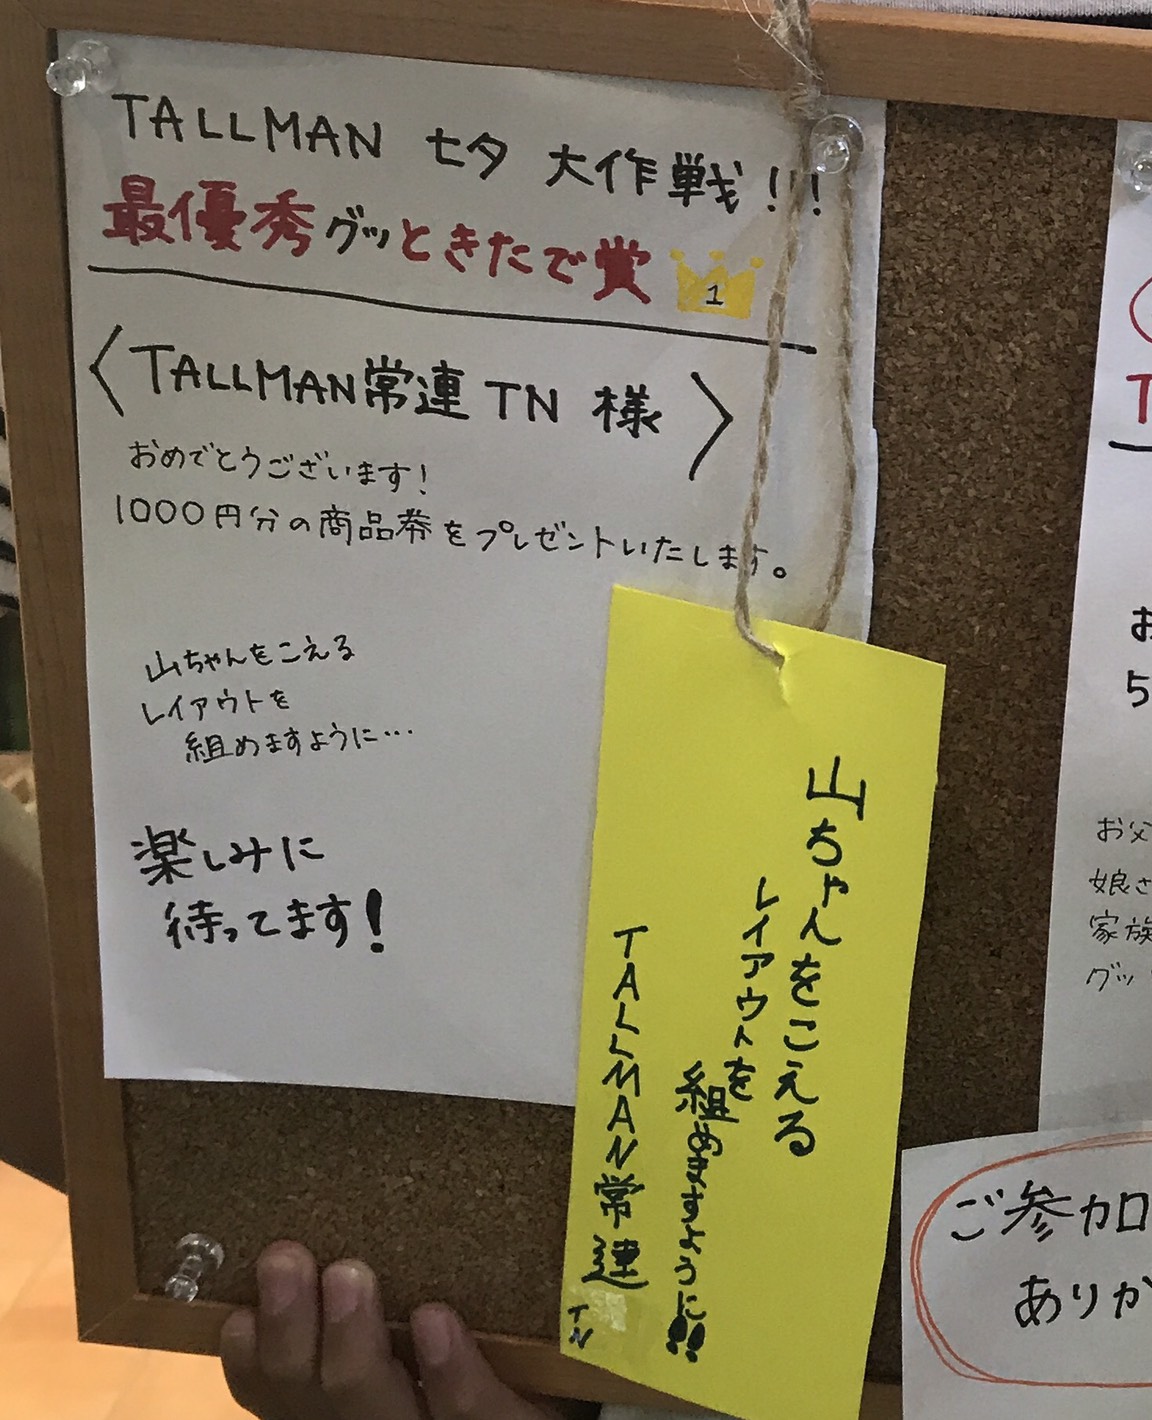 TALLMAN 七夕 大作戦!!
最優秀グッときたで賞
1
〈TALLMAN常連 TN 様〉
おめでとうございます!
1000円分の商品券をプレゼントいたします。
山ちゃんをこえる
レイアウトを
組めますように…
楽しみに
待ってます!
山ちゃんをこえる
レイアウトを
組めますように!!
TALLMAN常連
TN
T
お
5
お父
娘さ
家族
グッ
ご参加
ありが